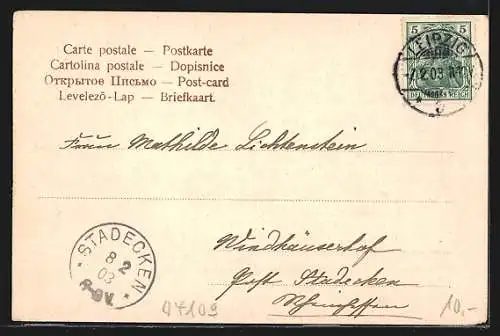 Carte postale — Postkarte
Cartolina postale — Dopisnice
Открытое Письмо — Post-card
Levelező-Lap — Briefkaart.
5 5
LEIPZIG
7.2.03
DEUTSCHES REICH
Frau Mathilde Lichtenstein
STADECKEN
8 2
03
8-9V.
Windhäuserhof
Post Stadecken
Rheinhessen
97109
10.-